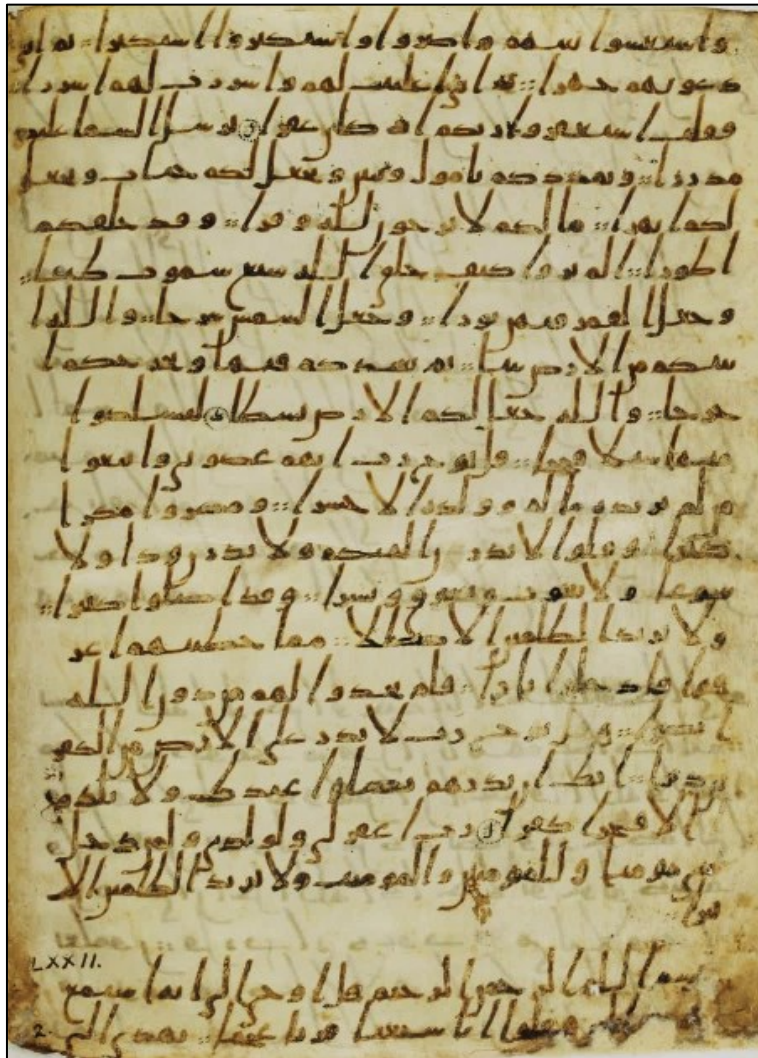 واستغشوا ثيبهم واصروا واستكبروا استكبرا ثم اني
دعوتهم جهرا ثم اني اعلنت لهم واسررت لهم اسررا
فقلت استغفروا ربكم انه كان غفرا يرسل السما عليكم
مدررا ويمددكم بامول وبنين ويجعل لكم جنت ويجعل
لكم انهرا ما لكم لا ترجون لله وقرا وقد خلقكم
اطورا الم تروا كيف خلق الله سبع سموت طبقا
وجعل القمر فيهن نورا وجعل الشمس سرجا والله ا
نبتكم من الارض نبتا ثم يعيدكم فيها ويخرجكم ا
خرجا والله جعل لكم الارض بسطا لتسلكوا
منها سبلا فججا قل نوح رب انهم عصوني واتبعوا
من لم يزده ماله وولده الا خسرا ومكروا مكرا
كبرا وقلوا لا تذرن الهتكم ولا تذرن ودا ولا
سوعا ولا يغوث ويعوق ونسرا وقد اضلوا كثيرا
ولا تزد الظلمين الا ضللا مما خطيتهم اغر
قوا فادخلوا نارا فلم يجدوا لهم من دون الله
انصرا وقل نوح رب لا تذر على الارض من الكفر
ين ديرا انك ان تذرهم يضلوا عبدك ولا يلدوا
الا فجرا كفرا رب اغفر لي ولولدي ولمن دخل
بيتي مومنا وللمومنين والمومنت ولا تزد الظلمين الا
تبرا
LXXII.
بسم الله الرحمن الرحيم قل اوحي الي انه استمع
الجن فقلوا انا سمعنا قرنا عجبا يهدي الى
2.